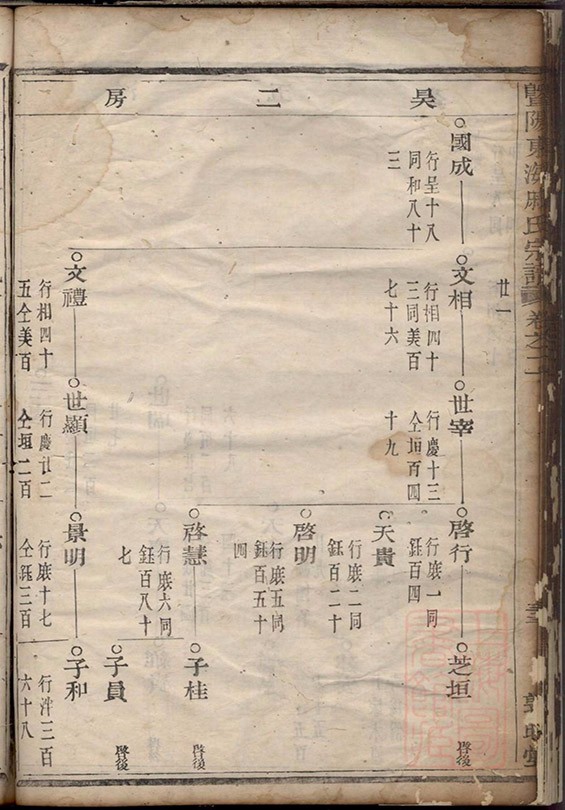 暨陽東海麻氏宗譜卷之二
廿一
昊二房
國成
行呈十八
同和八十
三
文相
行相四十
三同美百
七十六
世宰
行慶十三
仝垣百四
十九
啓行
行厫一同
鈺百四
芝垣
啓後
天貴
行厫二同
鈺百二十
啓明
行厫五同
鈺百五十
四
啓慧
行厫六同
鈺百八十
七
子桂
啓後
子員
啓後
文禮
行相四十
五仝美百
世顯
行慶廿二
仝垣二百
景明
行厫十七
仝鈺三百
子和
行泮三百
六十八